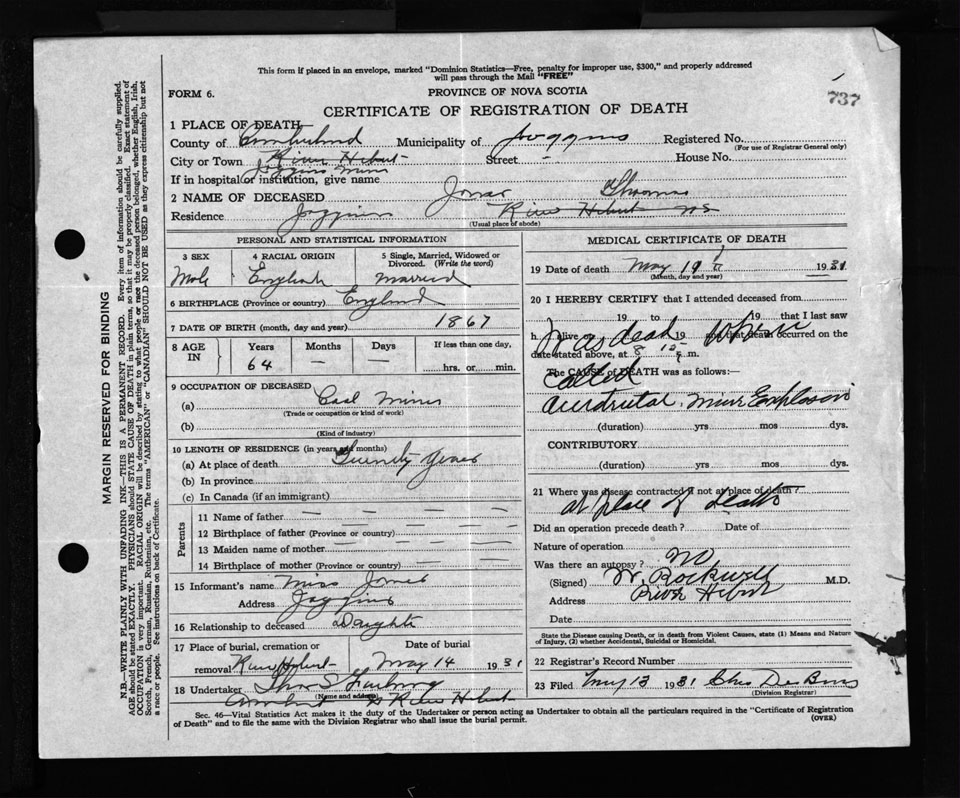 This form if placed in an envelope, marked "Dominion Statistics—Free, penalty for improper use, $300," and properly addressed
will pass through the Mail "FREE"
FORM 6.
PROVINCE OF NOVA SCOTIA
737
CERTIFICATE OF REGISTRATION OF DEATH
1 PLACE OF DEATH
County of Cumberland Municipality of Joggins Registered No.
(For use of Registrar General only)
City or Town River Hebert Street - House No.
Joggins Mines
If in hospital or institution, give name
2 NAME OF DECEASED Jonas Thomas
Residence Joggins River Hebert NS
(Usual place of abode)
PERSONAL AND STATISTICAL INFORMATION
3 SEX 4 RACIAL ORIGIN 5 Single, Married, Widowed or Divorced. (Write the word)
Male English Married
6 BIRTHPLACE (Province or country) England
7 DATE OF BIRTH (month, day and year) 1867
8 AGE IN Years Months Days If less than one day,
64 — — hrs. or min.
9 OCCUPATION OF DECEASED
(a) Coal Miner
(Trade or occupation or kind of work)
(b)
(Kind of industry)
10 LENGTH OF RESIDENCE (in years and months)
(a) At place of death Twenty Years
(b) In province
(c) In Canada (if an immigrant)
Parents
11 Name of father — — —
12 Birthplace of father (Province or country) — — —
13 Maiden name of mother — — —
14 Birthplace of mother (Province or country) — — —
15 Informant's name Miss Jones
Address Joggins
16 Relationship to deceased Daughter
17 Place of burial, cremation or Date of burial
removal River Hebert May 14 1931
18 Undertaker Thos S
(Name and address)
Amherst & River Hebert
MEDICAL CERTIFICATE OF DEATH
19 Date of death May 1931
(Month, day and year)
20 I HEREBY CERTIFY that I attended deceased from
19 to 19 that I last saw
h alive 19 that death occurred on the
was dead when
date stated above, at 8 m.
The CAUSE of DEATH was as follows:—
called
Accidental Mine Explosion
(duration) yrs mos dys.
CONTRIBUTORY
(duration) yrs mos dys.
21 Where was disease contracted if not at place of death?
at place of death
Did an operation precede death? Date of
Nature of operation
Was there an autopsy? NO
(Signed) W. Rockwell M.D.
Address River Hebert
Date
State the Disease causing Death, or in death from Violent Causes, state (1) Means and Nature
of Injury, (2) whether Accidental, Suicidal or Homicidal.
22 Registrar's Record Number
23 Filed May 13 1931 Chas
(Division Registrar)
Sec. 46—Vital Statistics Act makes it the duty of Undertaker or person acting as Undertaker to obtain all the particulars required in the "Certificate of Registration
of Death" and to file the same with the Division Registrar who shall issue the burial permit.
(OVER)
MARGIN RESERVED FOR BINDING
N.B.—WRITE PLAINLY WITH UNFADING INK—THIS IS A PERMANENT RECORD. Every item of information should be carefully supplied.
AGE should be stated EXACTLY. PHYSICIANS should STATE CAUSE OF DEATH in plain terms, so that it may be properly classified. Exact statement of
OCCUPATION is very important. RACIAL ORIGIN will be described by stating to what people or race the deceased person belonged, whether English, Irish,
Scotch, French, German, Russian, Ruthenian, etc. The terms "AMERICAN" or "CANADIAN" SHOULD NOT BE USED as they express citizenship but not
a race or people. See instructions on back of Certificate.